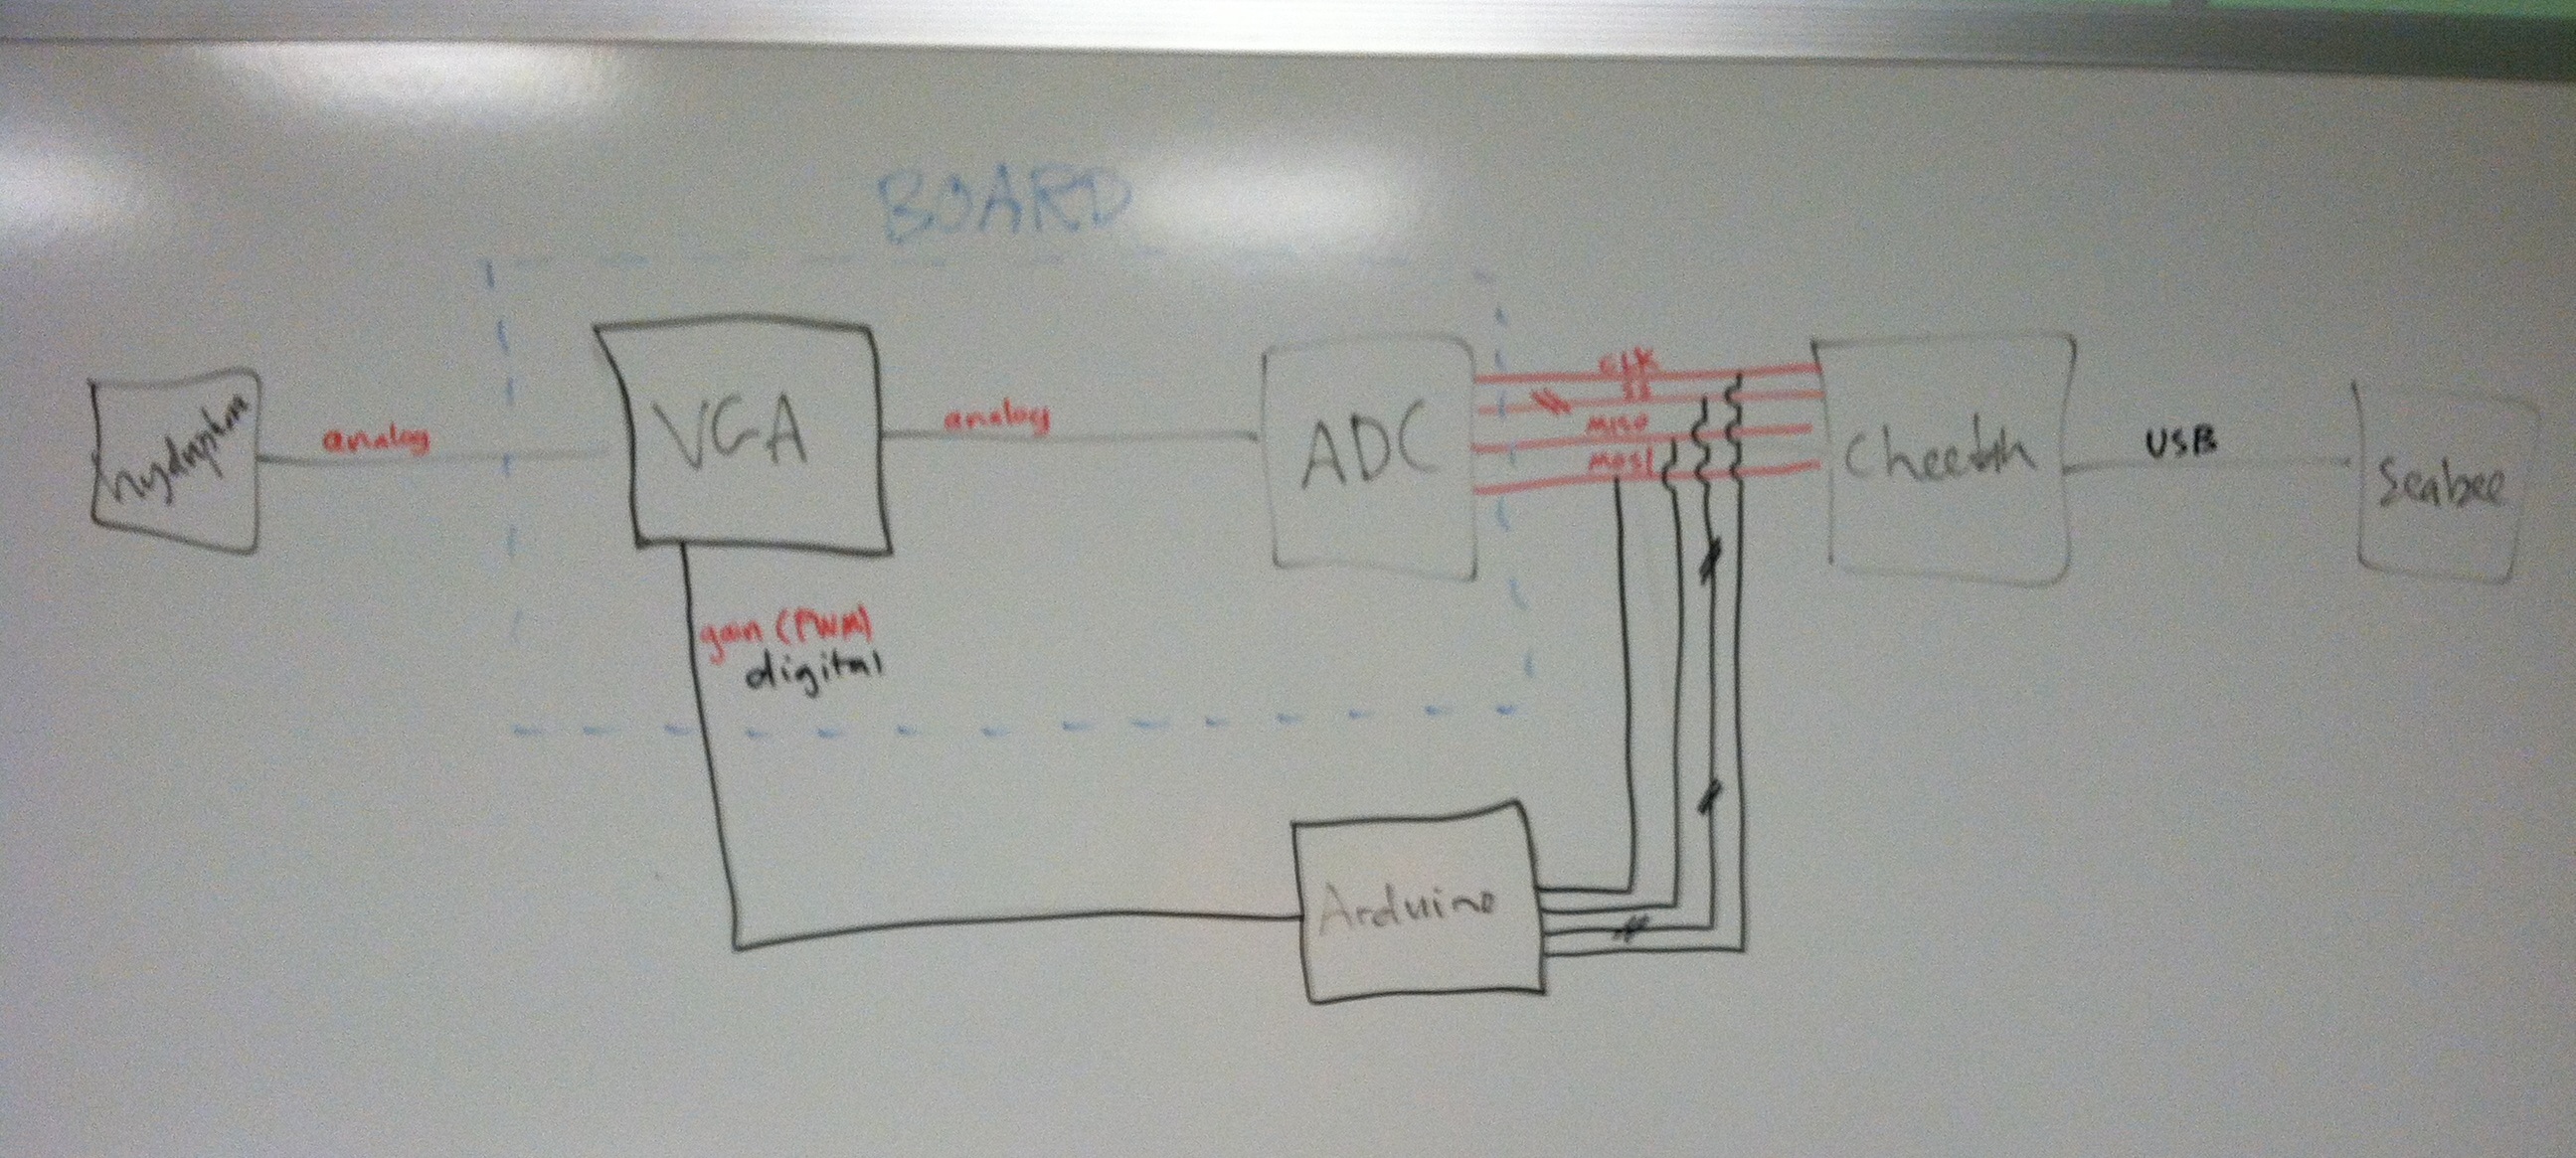 BOARD
hydrophn
analog
VGA
analog
ADC
CLK
SS
MISO
MOSI
Cheetah
USB
Seabee
gain (PWM)
digital
Arduino